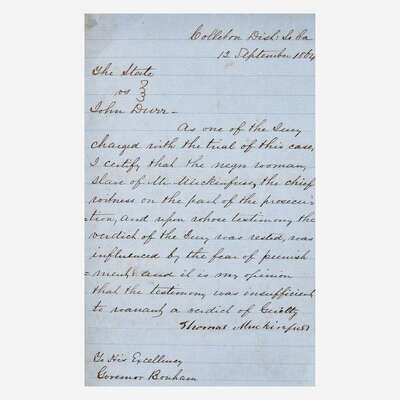 Colleton Dist: So Ca
12 September 1864
The State
vs
John Durr -
As one of the Jury
charged with the trial of this case,
I certify that the negro woman,
slave of Mr Muckenfuss, the chief
witness on the part of the prosecu-
tion, and upon whose testimony the
verdict of the Jury was rested, was
influenced by the fear of punish
=ment & and it is my opinion
that the testimony was insufficient
to warrant a verdict of Guilty
Thomas
To His Excellency
Governor Bonham